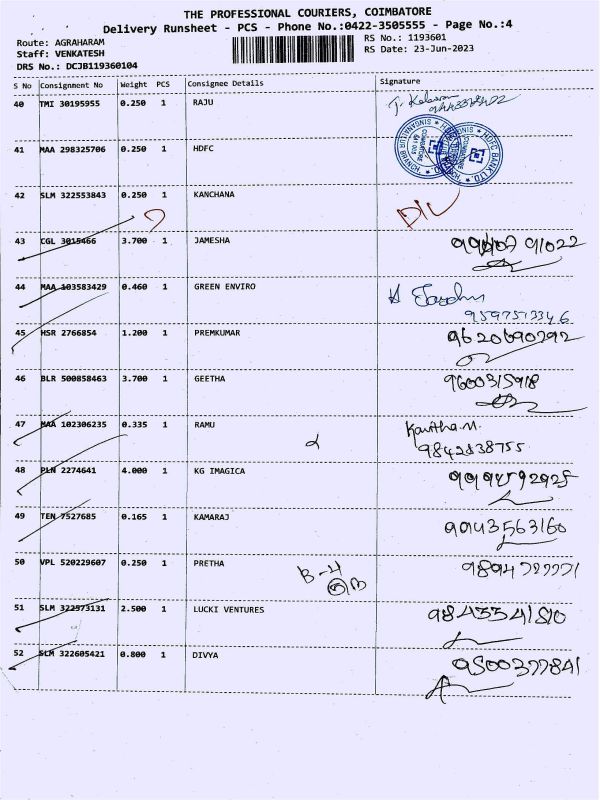 THE PROFESSIONAL COURIERS, COIMBATORE
Delivery Runsheet - PCS - Phone No.:0422-3505555 - Page No.:4
Route: AGRAHARAM
Staff: VENKATESH
DRS No.: DCJB119360104
RS No.: 1193601
RS Date: 23-Jun-2023
S No Consignment No Weight PCS Consignee Details Signature
40 TMI 30195955 0.250 1 RAJU
41 MAA 298325706 0.250 1 HDFC
HDFC BANK LTD.
42 SLM 322553843 0.250 1 KANCHANA D/L
43 CGL 3015466 3.700 1 JAMESHA
44 MAA 103583429 0.460 1 GREEN ENVIRO
9597513346
45 HSR 2766854 1.200 1 PREMKUMAR 9620690292
46 BLR 500858463 3.700 1 GEETHA 9600315918
47 MAA 102306235 0.335 1 RAMU Kavitha.M.
9842838755
48 PLN 2274641 4.000 1 KG IMAGICA 9994592925
49 TEN 7527685 0.165 1 KAMARAJ 9943563160
50 VPL 520229607 0.250 1 PRETHA B-4
51 SLM 322573131 2.500 1 LUCKI VENTURES
52 SLM 322605421 0.800 1 DIVYA 9500377841